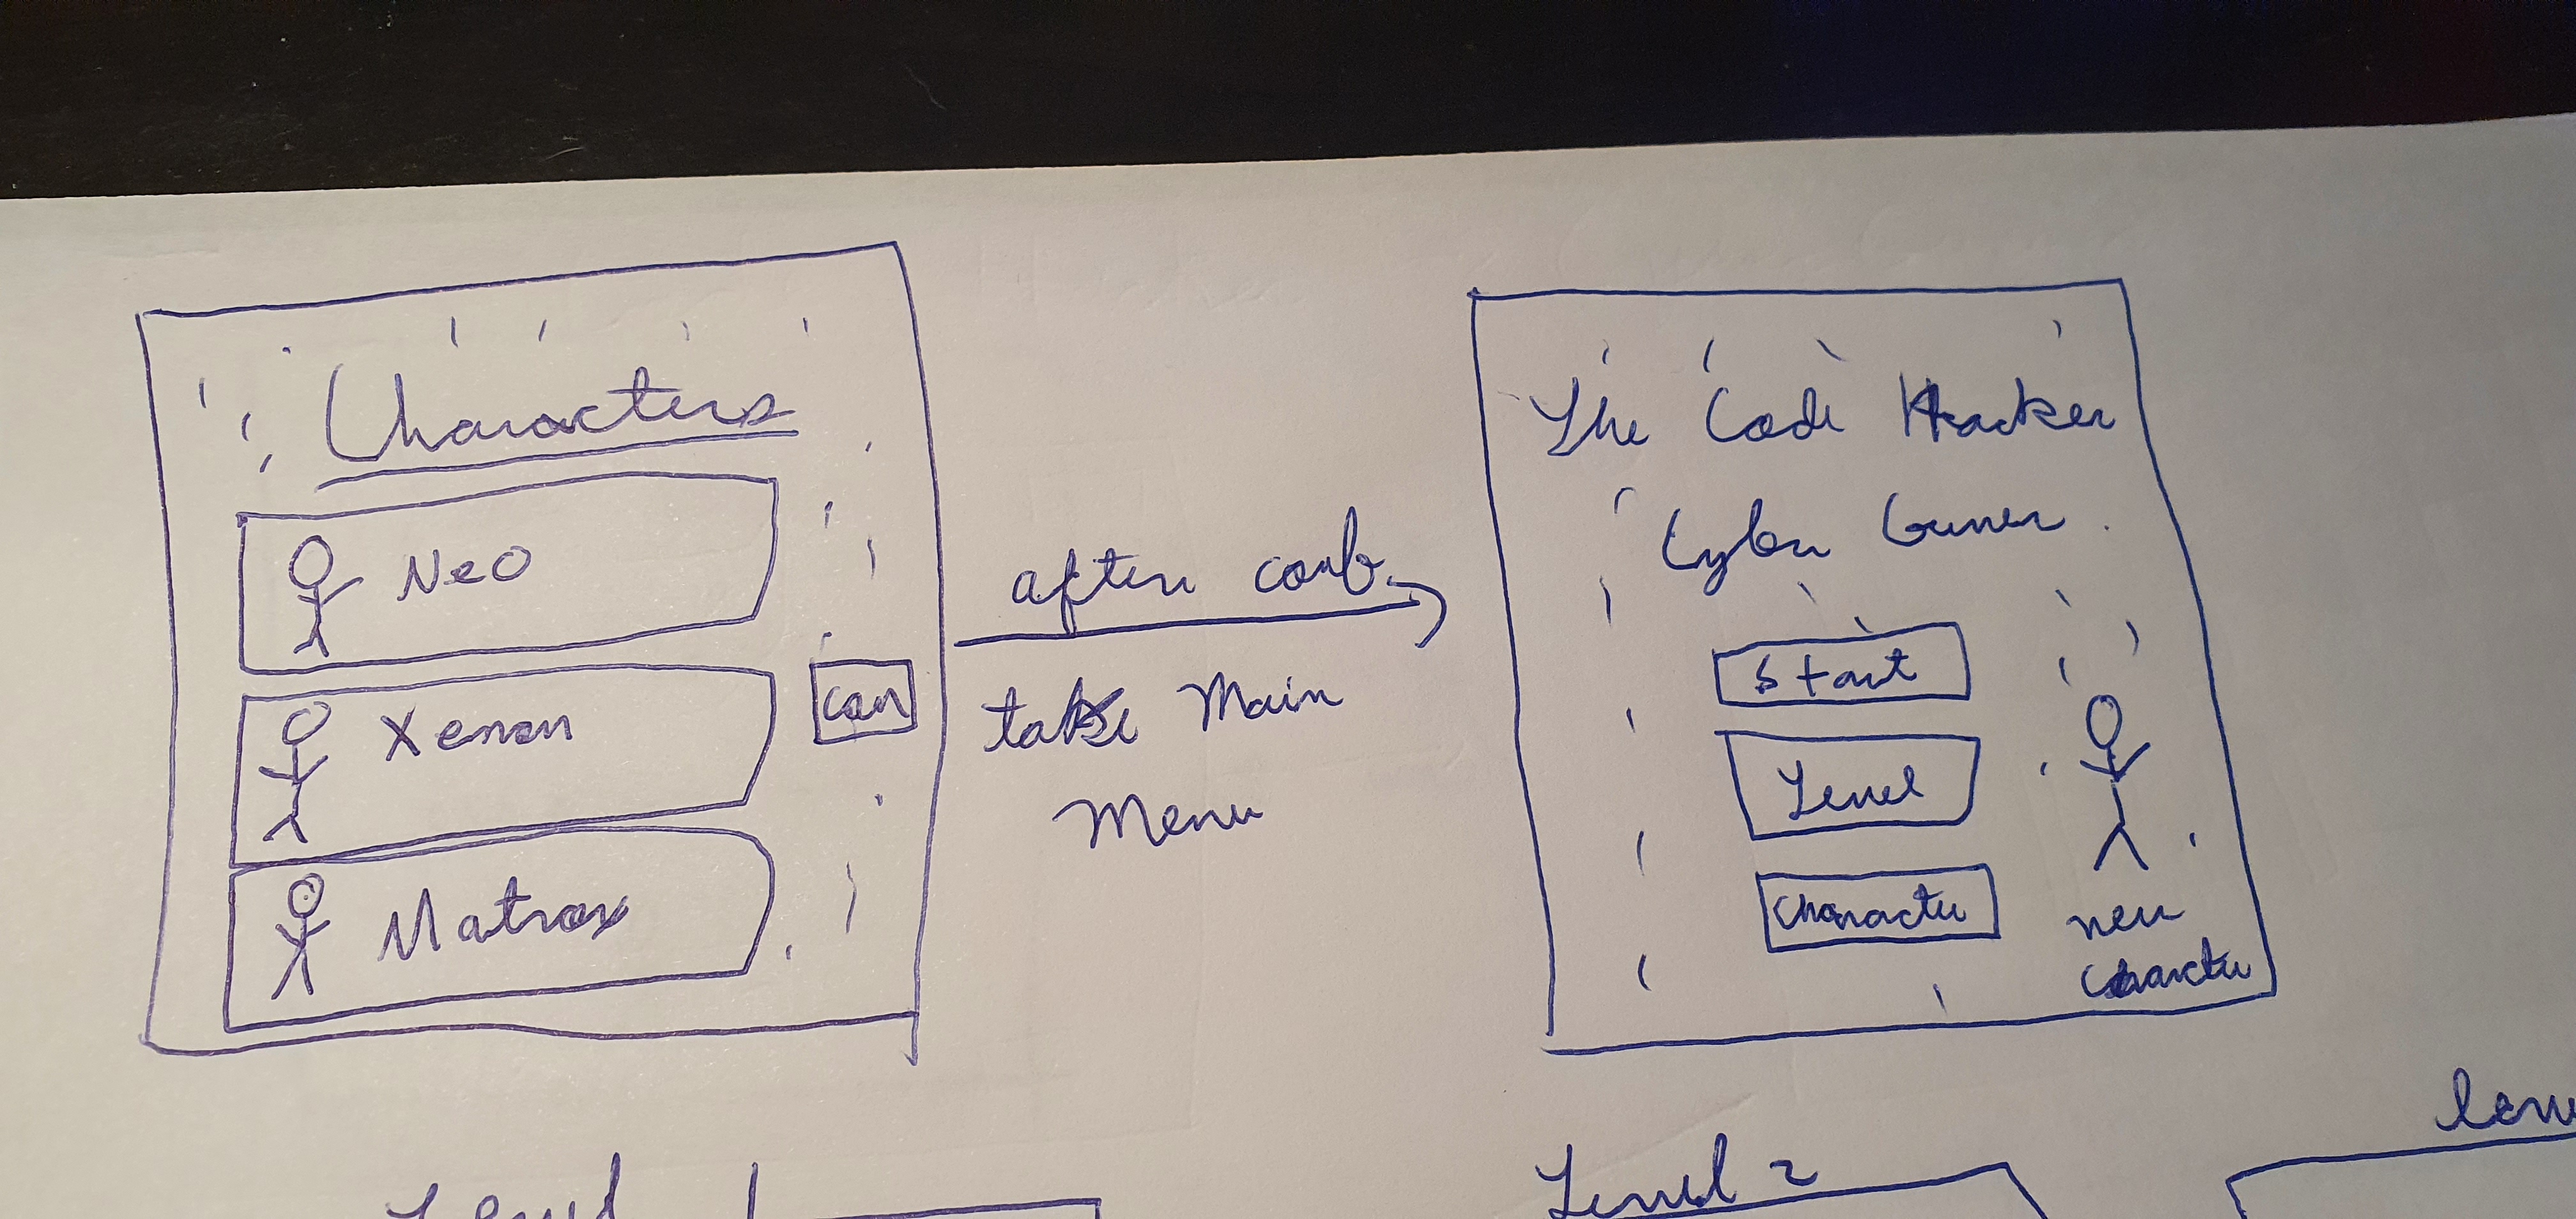 Characters
Neo
Xenon
Matrax
Con
after conf.
take Main
Menu
The Code Hacker
Cyber
Start
Level
Character
new
character
Level
Level 2